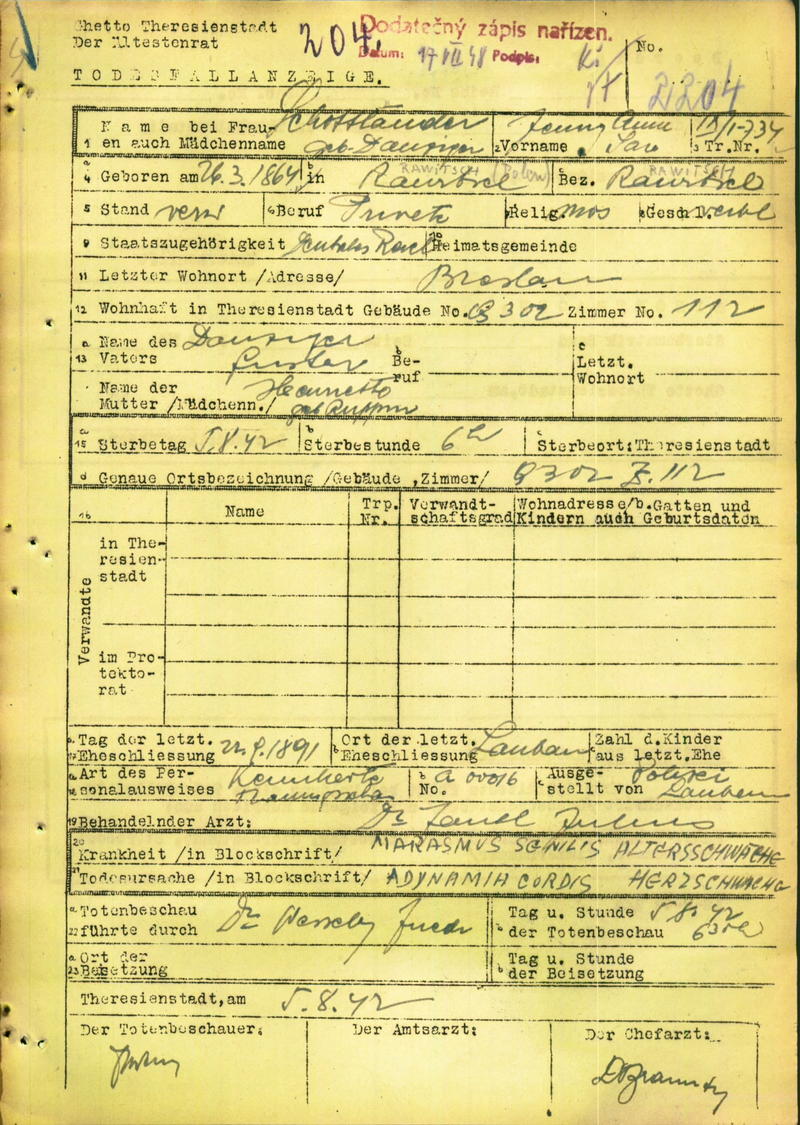 Ghetto Theresienstadt
Der Ältestenrat
204.
Dodatečný zápis nařízen.
Datum: 17 VII 48 Podpis:
No.
TODESFALLANZEIGE.
2204
1 Name bei Frauen auch Mädchenname
2 Vorname Jenny
3 Tr.Nr. IX/1-734
a 4 Geboren am 26.3.1864 b in RAWITSCH (Polen) c Bez. RAWITSCH
5 Stand verw 6 Beruf Private 7 Relig. mos 8 Geschl. weibl
9 Staatszugehörigkeit Deutsches Reich 10 Heimatsgemeinde
11 Letzter Wohnort /Adresse/ Breslau
12 Wohnhaft in Theresienstadt Gebäude No. Q 302 Zimmer No. 112
a 13 Name des Vaters Danziger
b Beruf
c Letzt. Wohnort
Name der Mutter /Mädchenn./
a 15 Sterbetag 5.8.42 b Sterbestunde 6h c Sterbeort: Theresienstadt
d Genaue Ortsbezeichnung /Gebäude, Zimmer/ Q 302 Z. 112
16 Name Trp. Nr. Verwandtschaftsgrad Wohnadresse/b.Gatten und Kindern auch Geburtsdaten
Verwandte
in Theresienstadt
im Protektorat
a 17 Tag der letzt. Eheschliessung b Ort der letzt. Eheschliessung Lauban c Zahl d.Kinder aus letzt.Ehe
a 18 Art des Personalausweises Kennkarte b No. A 00016 c Ausgestellt von Polizei Lauban
19 Behandelnder Arzt: Dr
20 Krankheit /in Blockschrift/ MARASMUS SENILIS ALTERSSCHWÄCHE
21 Todesursache /in Blockschrift/ ADYNAMIA CORDIS HERZSCHWÄCHE
a 22 Totenbeschau führte durch Dr
b Tag u. Stunde der Totenbeschau 5 8. 42
a 23 Ort der Beisetzung
b Tag u. Stunde der Beisetzung
Theresienstadt, am 5.8.42
Der Totenbeschauer: Der Amtsarzt: Der Chefarzt: